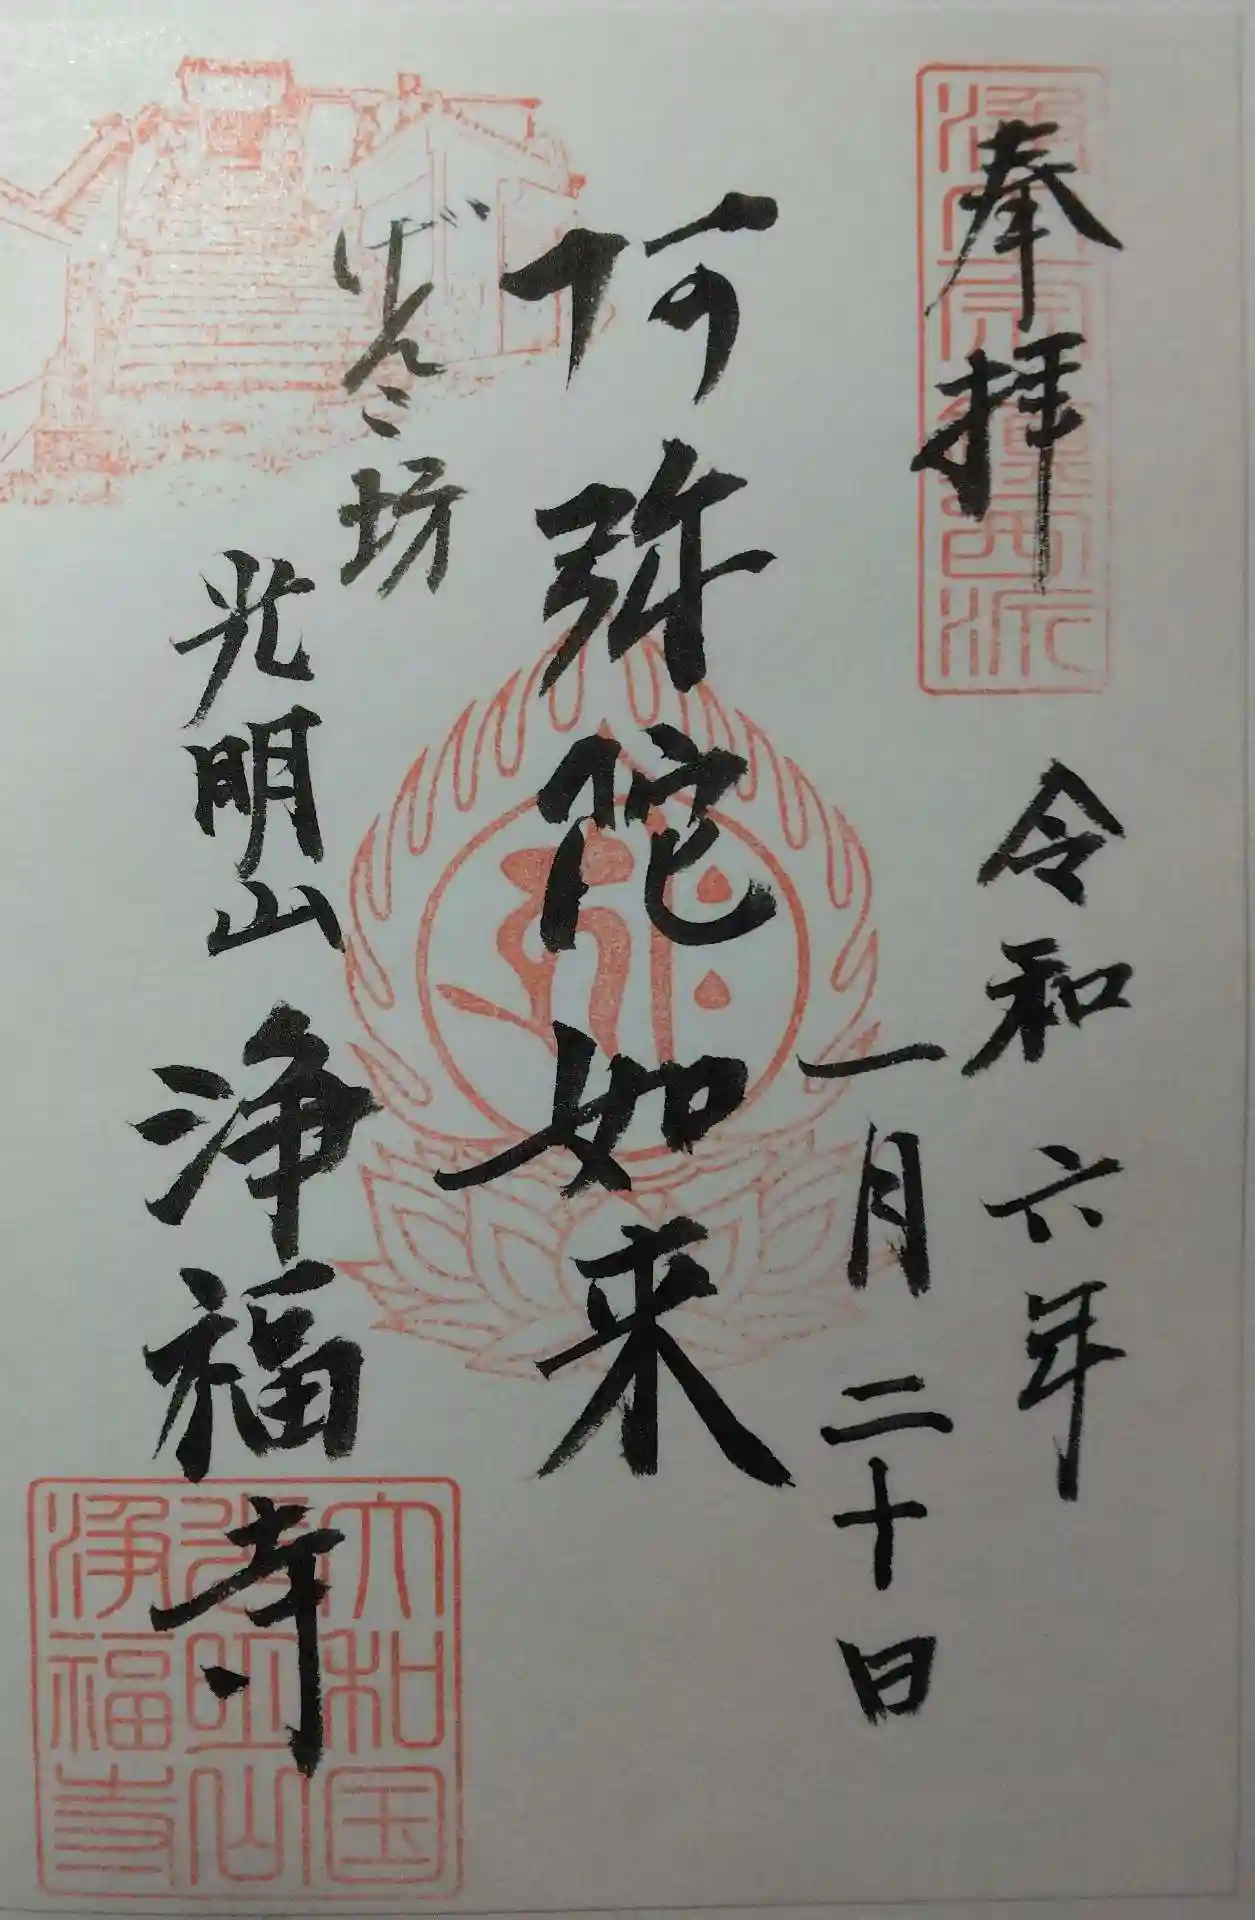 奉拝
浄土宗鎮西派
令和六年
一月二十日
阿弥陀如来
坊
光明山 浄福寺
大和国
光明山
浄福寺